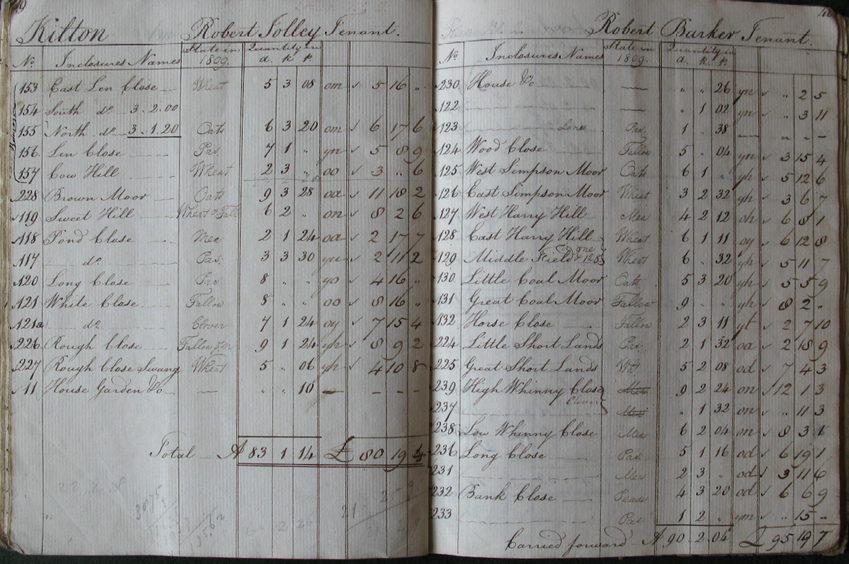 Kilton Robert Jolley Tenant.
No. Inclosures Names State in 1809. Quantity in a. r. p.
153 East Len Close Wheat 5 3 08 om 5 16 "
154 South do. 3.2.00
155 North do. 3.1.20 Oats 6 3 20 om 6 17 6
156 Len Close Pas 7 1 " yn 5 8 9
157 Cow Hill Wheat 2 3 " oo 3 " 6
228 Brown Moor Oats 9 3 28 oa 11 18 2
119 Sweet Hill Wheat & Fall 6 2 " on 8 2 6
118 Pond Close Mea 2 1 24 oa 2 17 7
117 do. Pas 3 3 30 2 11 2
120 Long Close Pas 8 " " yo 4 16 "
121 White Close Fallow 8 " " oo 8 16 "
121a do. Clover 7 1 24 oy 7 15 4
226 Rough Close Fallow 9 1 24 yh 8 9 2
227 Rough Close Swang Wheat 5 " 06 yh 4 10 8
11 House Garden &c — " " 10 — — — —
Total A 83 1 14 £ 80 19 4
Robert Barker Tenant.
No. Inclosures Names State in 1809. Quantity in a. r. p.
230 House &c — " " 26 yn " 2 5
122 — " 1 02 yn " 3 11
123 Lane Pas 1 " 38 — — — —
124 Wood Close Fallow 5 " 04 yn 3 15 4
125 West Simpson Moor Oats 6 1 " yh 5 12 6
126 East Simpson Moor Wheat 3 2 32 yh 3 6 7
127 West Harry Hill Mea 4 2 12 oh 6 8 1
128 East Harry Hill Wheat 6 1 11 oy 6 12 8
129 Middle Field Wheat 6 " 32 yh 5 11 7
130 Little Coal Moor Oats 5 3 20 yh 5 5 9
131 Great Coal Moor Fallow 9 " " yh 8 2 "
132 Horse Close Fallow 2 3 11 yt 2 7 10
224 Little Short Lands Pas 2 1 32 oa 2 18 9
225 Great Short Lands 5 2 08 od 7 4 3
239 High Whinny Close 9 2 24 on 12 1 3
237 Clover " 1 32 on " 11 3
238 Low Whinny Close Mea 6 2 04 on 8 3 1
236 Long Close Pas 5 1 16 od 6 19 1
231 Mea 2 3 " od 3 11 6
232 Bank Close 4 3 20 od 6 6 9
233 Pas 1 2 " ym " 15 "
Carried forward A 90 2 04 £ 95 19 7